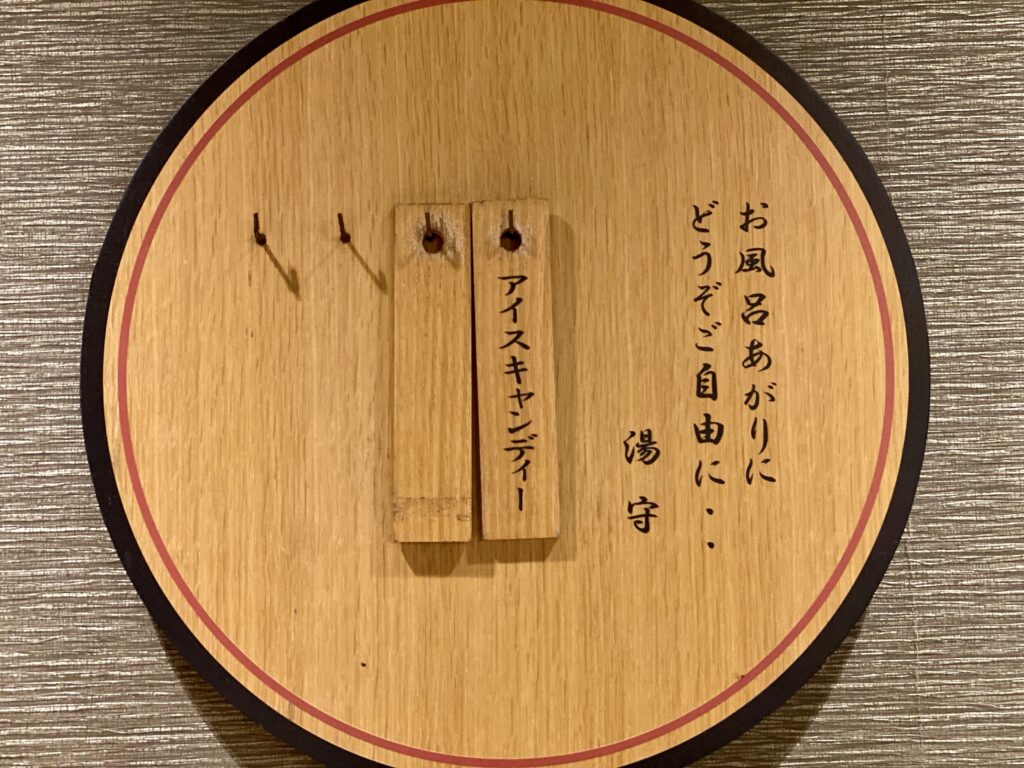 お風呂あがりに
どうぞご自由に・・
湯守
アイスキャンディー